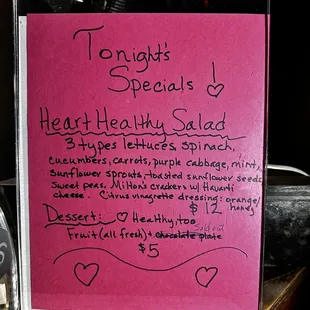 Tonight's
Specials!
Heart Healthy Salad
3 types lettuces, spinach,
cucumbers, carrots, purple cabbage, mint,
sunflower sprouts, toasted sunflower seeds
sweet peas. Milton's crackers w/ Havarti
cheese. Citrus vinagrette dressing: orange/
$12 honey
Dessert: Healthy, too
Sold out
Fruit (all fresh) + chocolate plate
$5